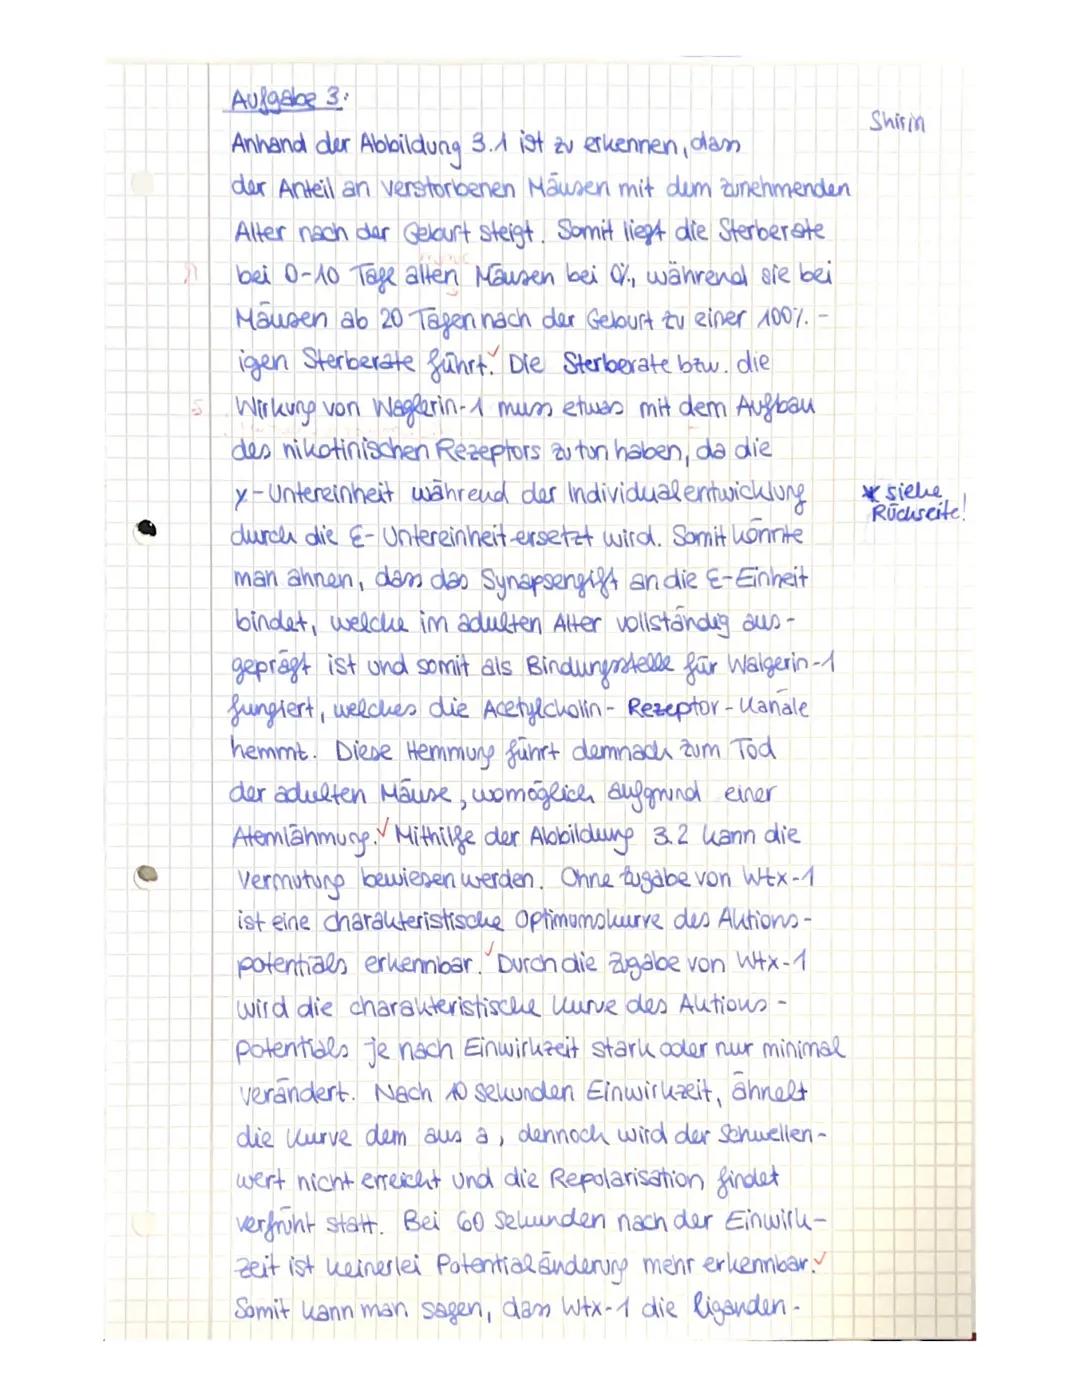 Aufgabe 3:
Shirin
Anhand der Abbildung 3.1 ist zu erkennen, dass
der Anteil an verstorbenen Mäusen mit dem zunehmenden
Alter nach der Geburt steigt. Somit liegt die Sterberate
bei 0-10 Tage alten Mäusen bei 0%, während sie bei
Mäusen ab 20 Tagen nach der Geburt zu einer 100%.-
igen Sterberate führt. Die Sterberate bzw. die
Wirkung von Waglerin-1 muss etwas mit dem Aufbau
des nikotinischen Rezeptors zu tun haben, da die
γ-Untereinheit während der Individualentwicklung
* siehe
Rückseite!
durch die ε-Untereinheit ersetzt wird. Somit könnte
man ahnen, dass das Synapsengift an die ε-Einheit
bindet, welche im adulten Alter vollständig aus-
geprägt ist und somit als Bindungsstelle für Walgerin-1
fungiert, welches die Acetylcholin-Rezeptor-Kanäle
hemmt. Diese Hemmung führt demnach zum Tod
der adulten Mäuse, womöglich aufgrund einer
Atemlähmung. Mithilfe der Abbildung 3.2 kann die
Vermutung bewiesen werden. Ohne Zugabe von Wtx-1
ist eine charakteristische Optimumskurve des Aktions-
potentials erkennbar. Durch die Zugabe von Wtx-1
wird die charakteristische Kurve des Aktions-
potentials je nach Einwirkzeit stark oder nur minimal
verändert. Nach 10 Sekunden Einwirkzeit, ähnelt
die Kurve dem aus a, dennoch wird der Schwellen-
wert nicht erreicht und die Repolarisation findet
verfrüht statt. Bei 60 Sekunden nach der Einwirk-
zeit ist keinerlei Potentialänderung mehr erkennbar.
Somit kann man sagen, dass Wtx-1 die liganden-